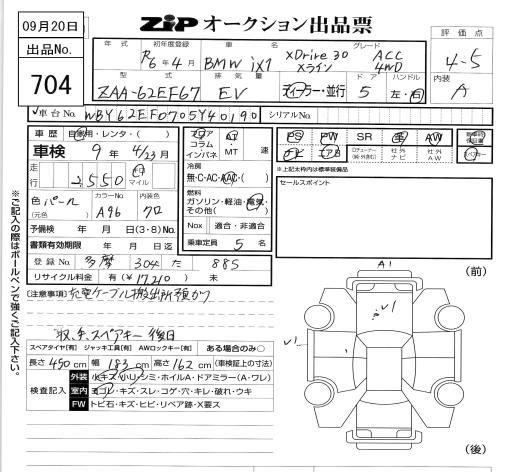 09月20日
出品No.
704
ZiP オークション出品票
年式 初年度登録 車名 グレード
R6年4月 BMW iX1 XDrive 30 Xライン ACC 4WD
型式 排気量 ドア ハンドル
ZAA-62EF67 EV ディーラー・並行 5 左・右
評価点
4-5
内装
A
車台No. WBY62EF0705Y40190 シリアルNo.
車歴 自家用・レンタ・( )
車検 9年 4/23月
走行 2,550 km マイル
色 パール (元色) カラーNo. A96 内装色 クロ
予備検 年 月 日(3・8)No.
書類有効期限 年 月 日迄
登録No. 多摩 304 た 885
リサイクル料金 有(¥17210) 未
フロア コラム インパネ AT・MT 速
冷房 無・C・AC・AAC・( )
燃料 ガソリン・軽油・電気・その他( )
Nox 適合・非適合
乗車定員 5 名
PS PW SR 革 AW
エアB 社外ナビ 社外AW
*上記太枠内は標準装備品
セールスポイント
[注意事項] 充電ケーブル搬出所預かり
取、キ、スペアキー後日
スペアタイヤ[有] ジャッキ工具[有] AWロックキー[有] ある場合のみ○
長さ 450cm 幅 183cm 高さ 162cm (車検証上の寸法)
検査記入
外装 小キズ・小リ・シミ・ホイルA・ドアミラー(A・ワレ)
室内 ヨゴレ・キズ・スレ・コゲ・穴・キレ・破れ・ウキ
FW トビ石・キズ・ヒビ・リペア跡・X要ス
※ご記入の際はボールペンで強くご記入下さい。
A1
(前)
V1
V1
(後)